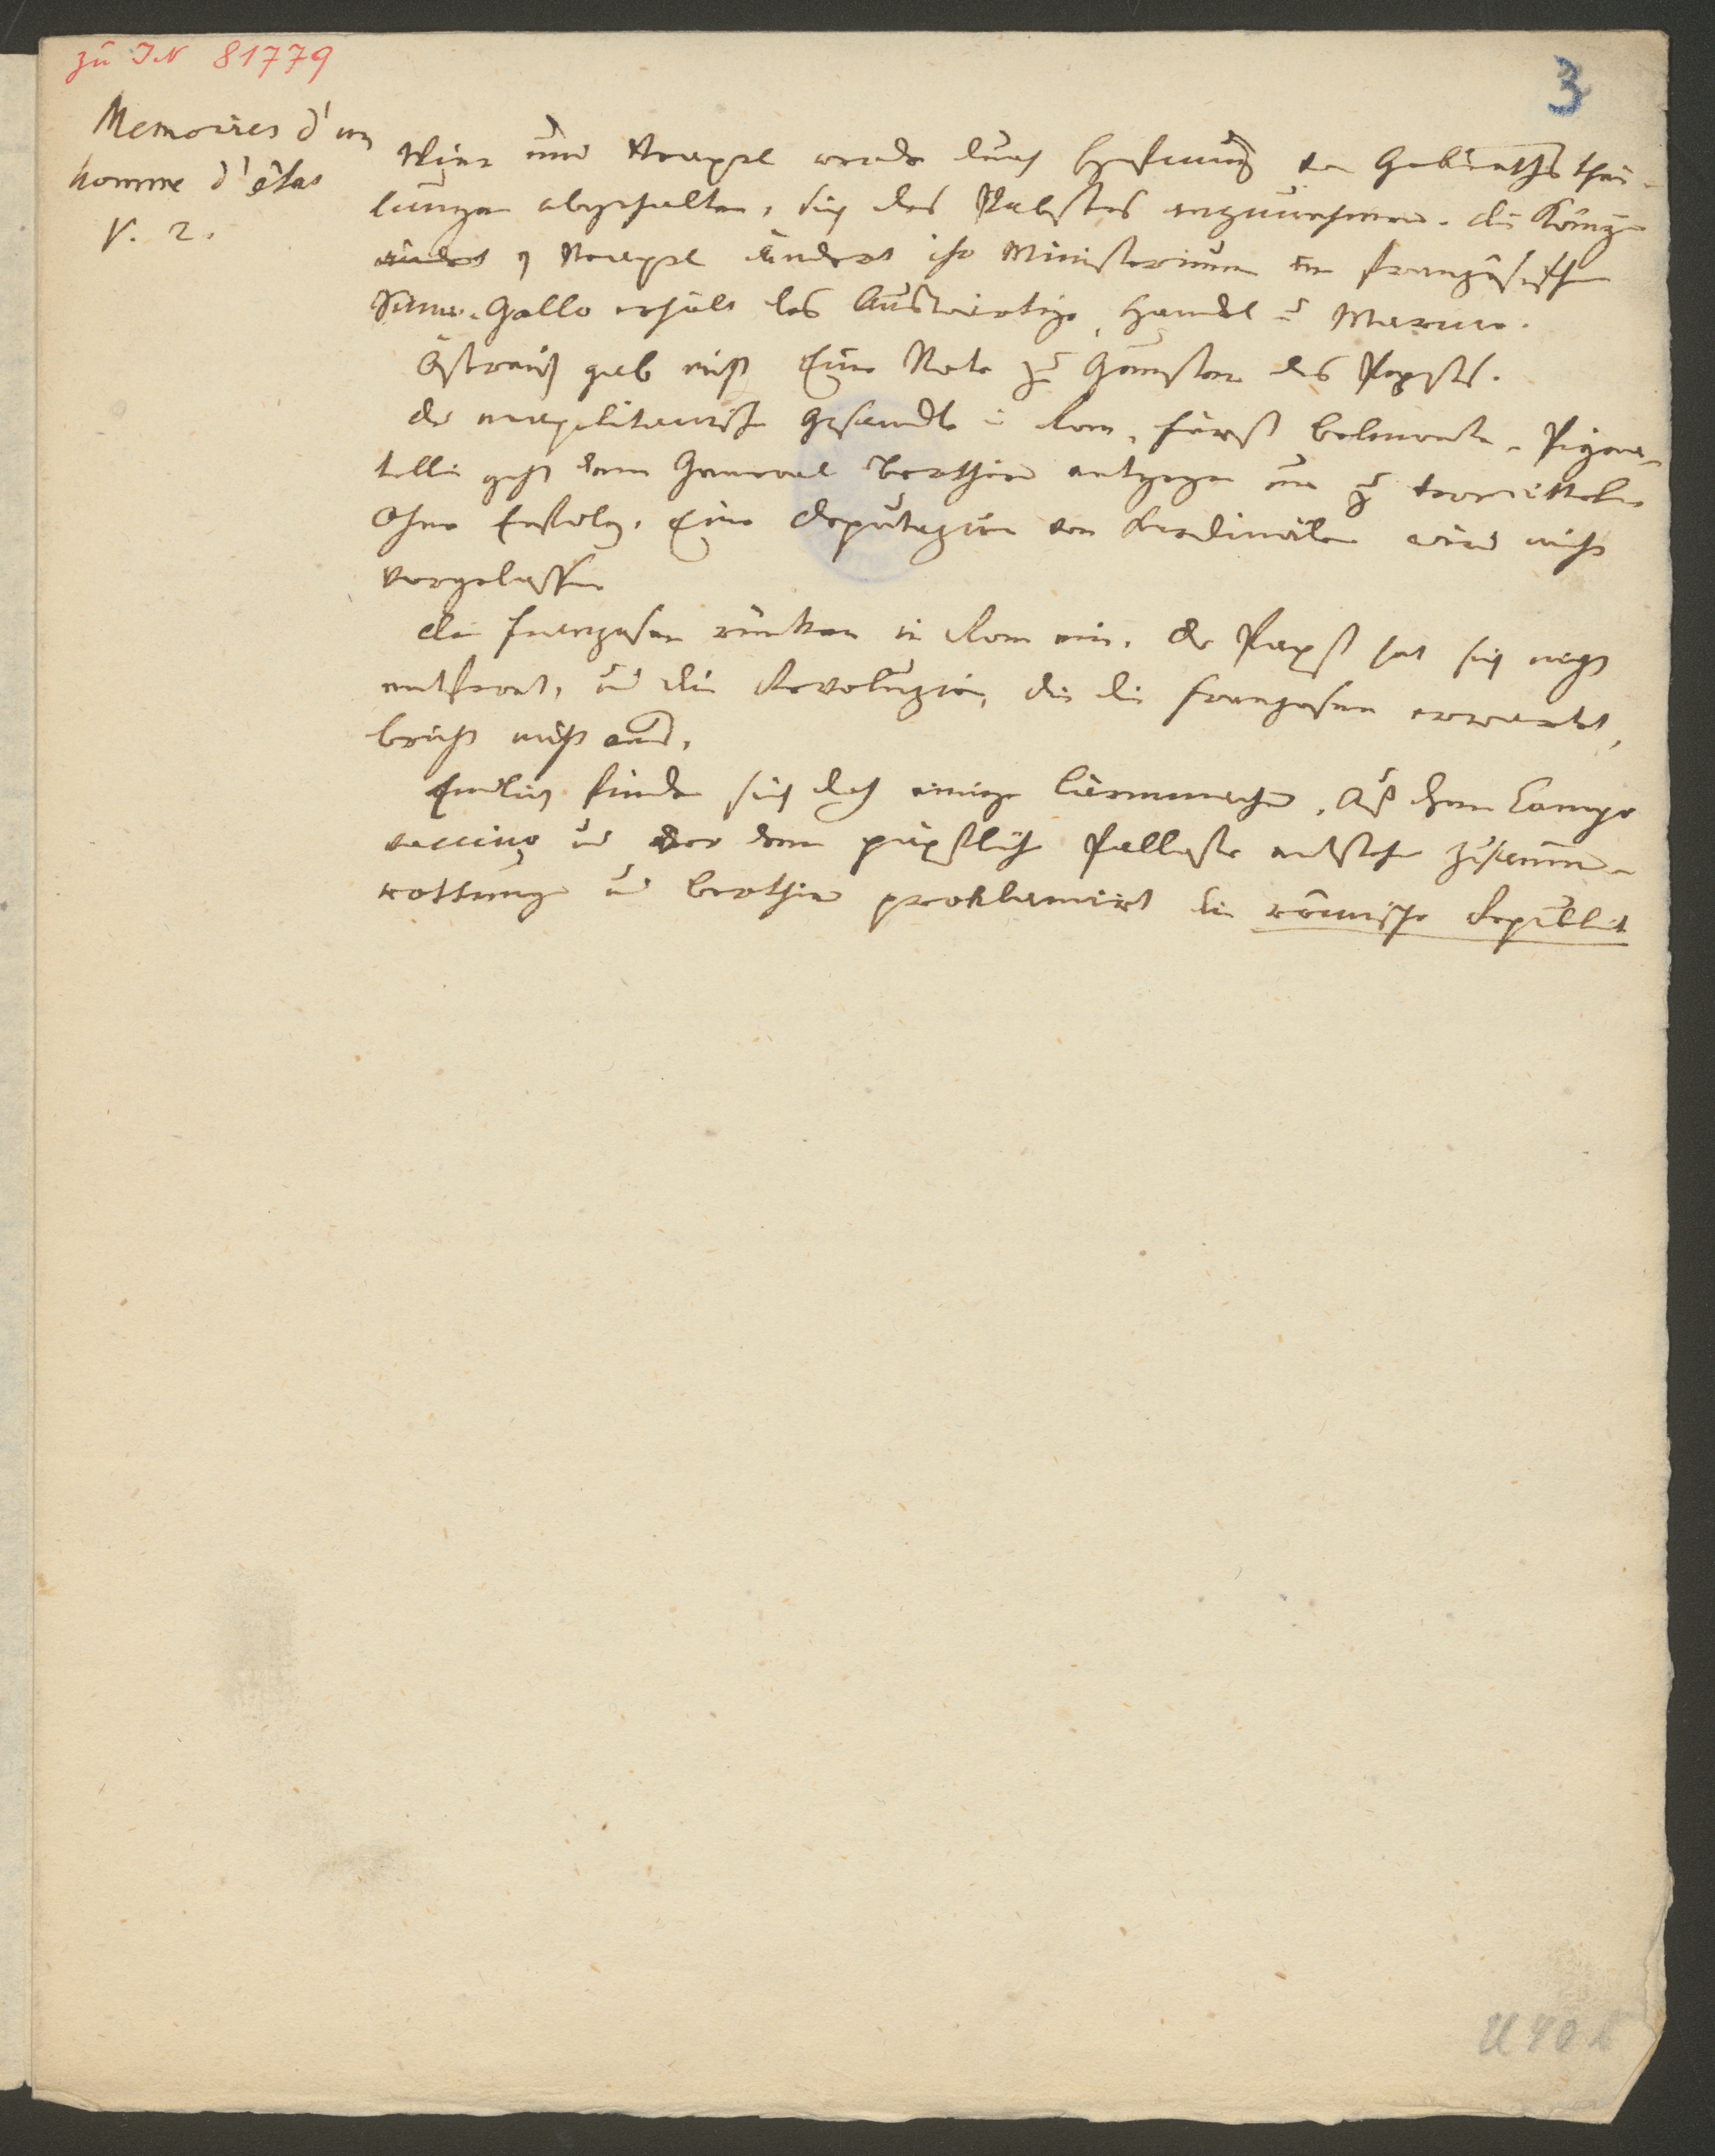 zu IN 81779
3
Memoires d'un
homme d'état
V. 2.
Wien und Neapel werden durch Hofnung von Gebiethsthei-
lungen abgehalten, sich des Pabstes anzunehmen. Die Königin
ändert v Neapel ändert ihr Ministerium im französischen
Sinne. Gallo erhält das Auswärtige, Handel u Marine.
Östreich gab nicht Eine Note zu Gunsten des Papstes.
Der neapolitanische Gesandte in Rom, Fürst Belmonte-Pigna-
telli geht dem General Berthier entgegen um zu vermitteln
Ohne Erfolg. Eine Deputazion von Kardinälen wird nicht
vorgelassen
Die Franzosen rücken in Rom ein. Der Papst hat sich nicht
entfernt, und die Revoluzion, die die Franzosen erwartet,
bricht nicht aus.
Endlich finden sich doch einige Lärmmacher. Auf dem Campo
vaccino und vor dem päpstlichen Pallaste entstehen Zusammen-
rottungen und Berthier proklamirt die römische Republik